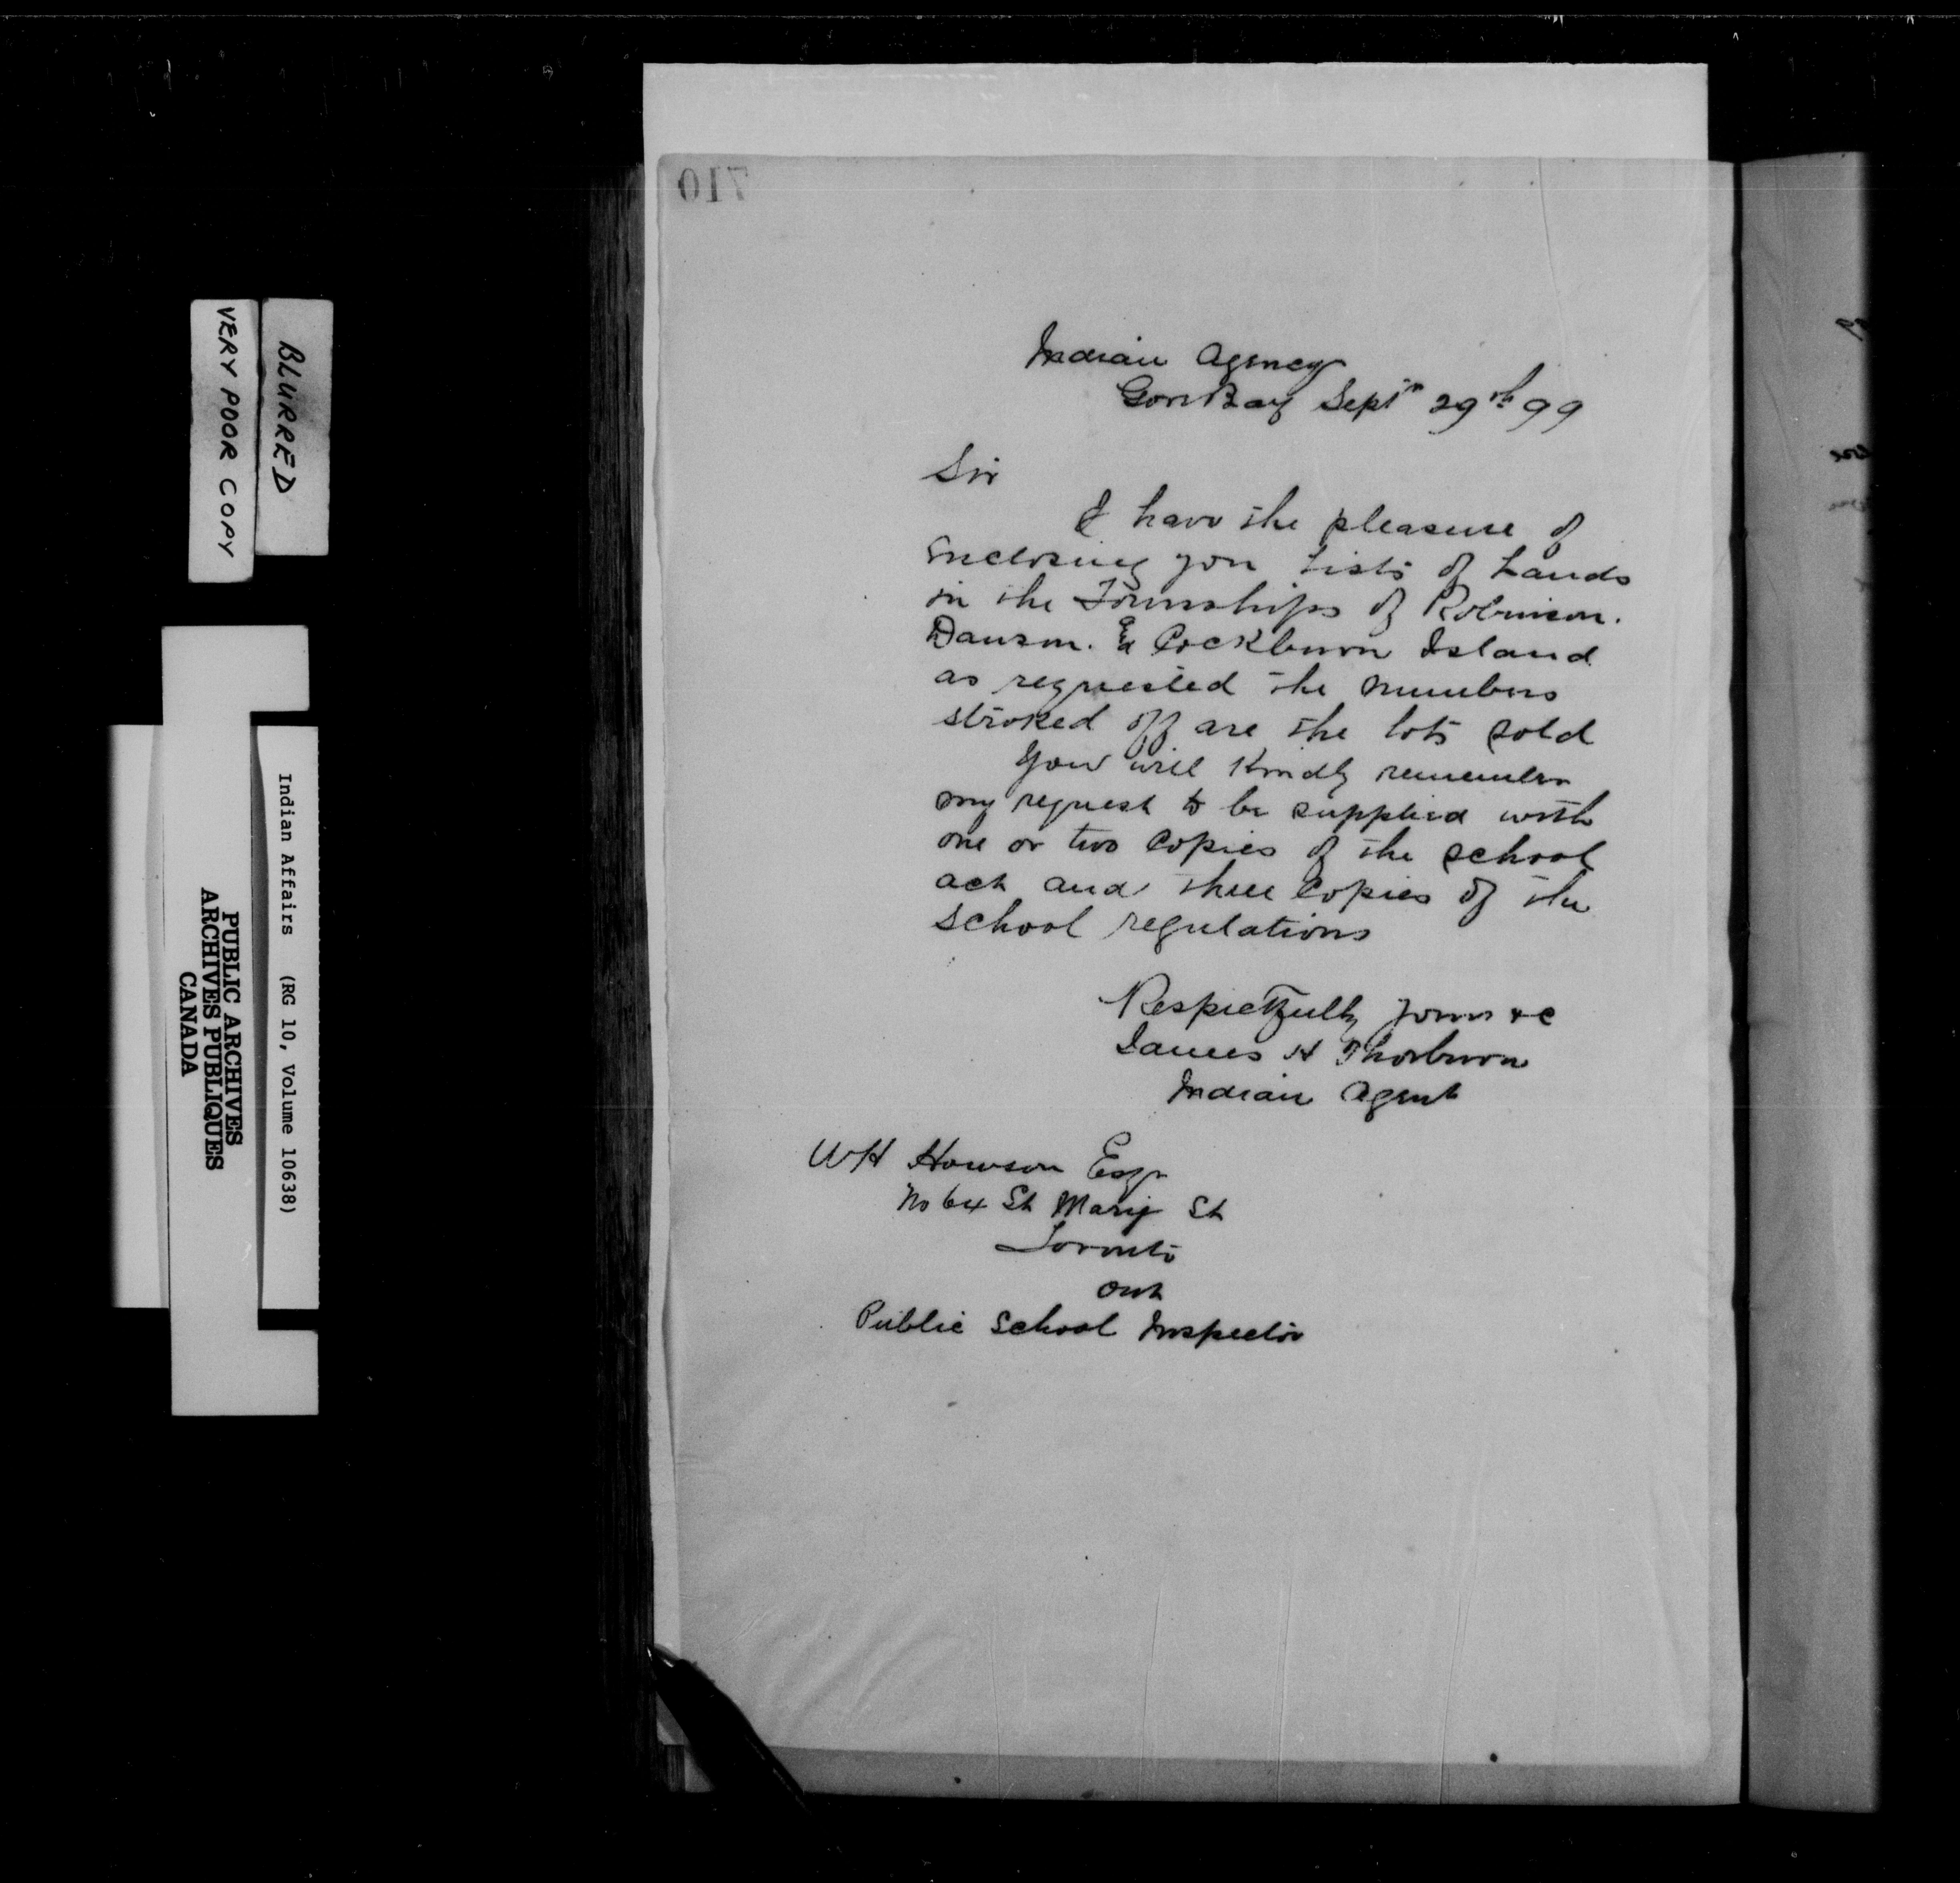 710
Indian Agency
Gore Bay Septr 29th 99
Sir
I have the pleasure of
enclosing you Lists of Lands
in the Townships of Robinson.
Dawson. & Cockburn Island
as requested the numbers
stroked off are the lots sold
You will Kindly remember
my request to be supplied with
one or two Copies of the school
act and three Copies of the
school regulations
Respectfully yours &c
James H Thorburn
Indian Agent
W H Howson Esqr
No 64 St Mary St
Toronto
Ont
Public School Inspector
BLURRED
VERY POOR COPY
Indian Affairs (RG 10, Volume 10638)
PUBLIC ARCHIVES
ARCHIVES PUBLIQUES
CANADA